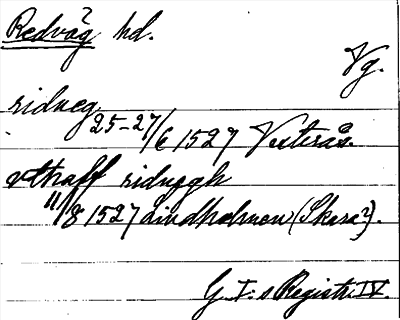 Redväg hd.
Vg.
ridueg
25-27/6 1527 Vesterås.
vthaff ridueggh
11/8 1527 Lindholmen (Skara?).
G I:s Registr. IV.